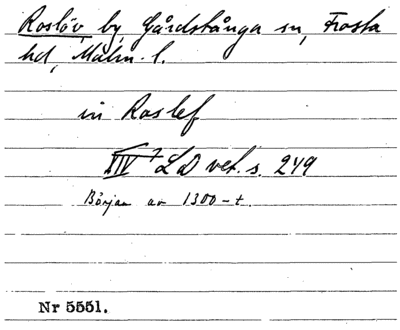 Roslöv by Gårdstånga sn, Frosta
hd, Malm. l.
in Roslef
XIV LD vet. s. 249
Början av 1300-t.
Nr 5551.